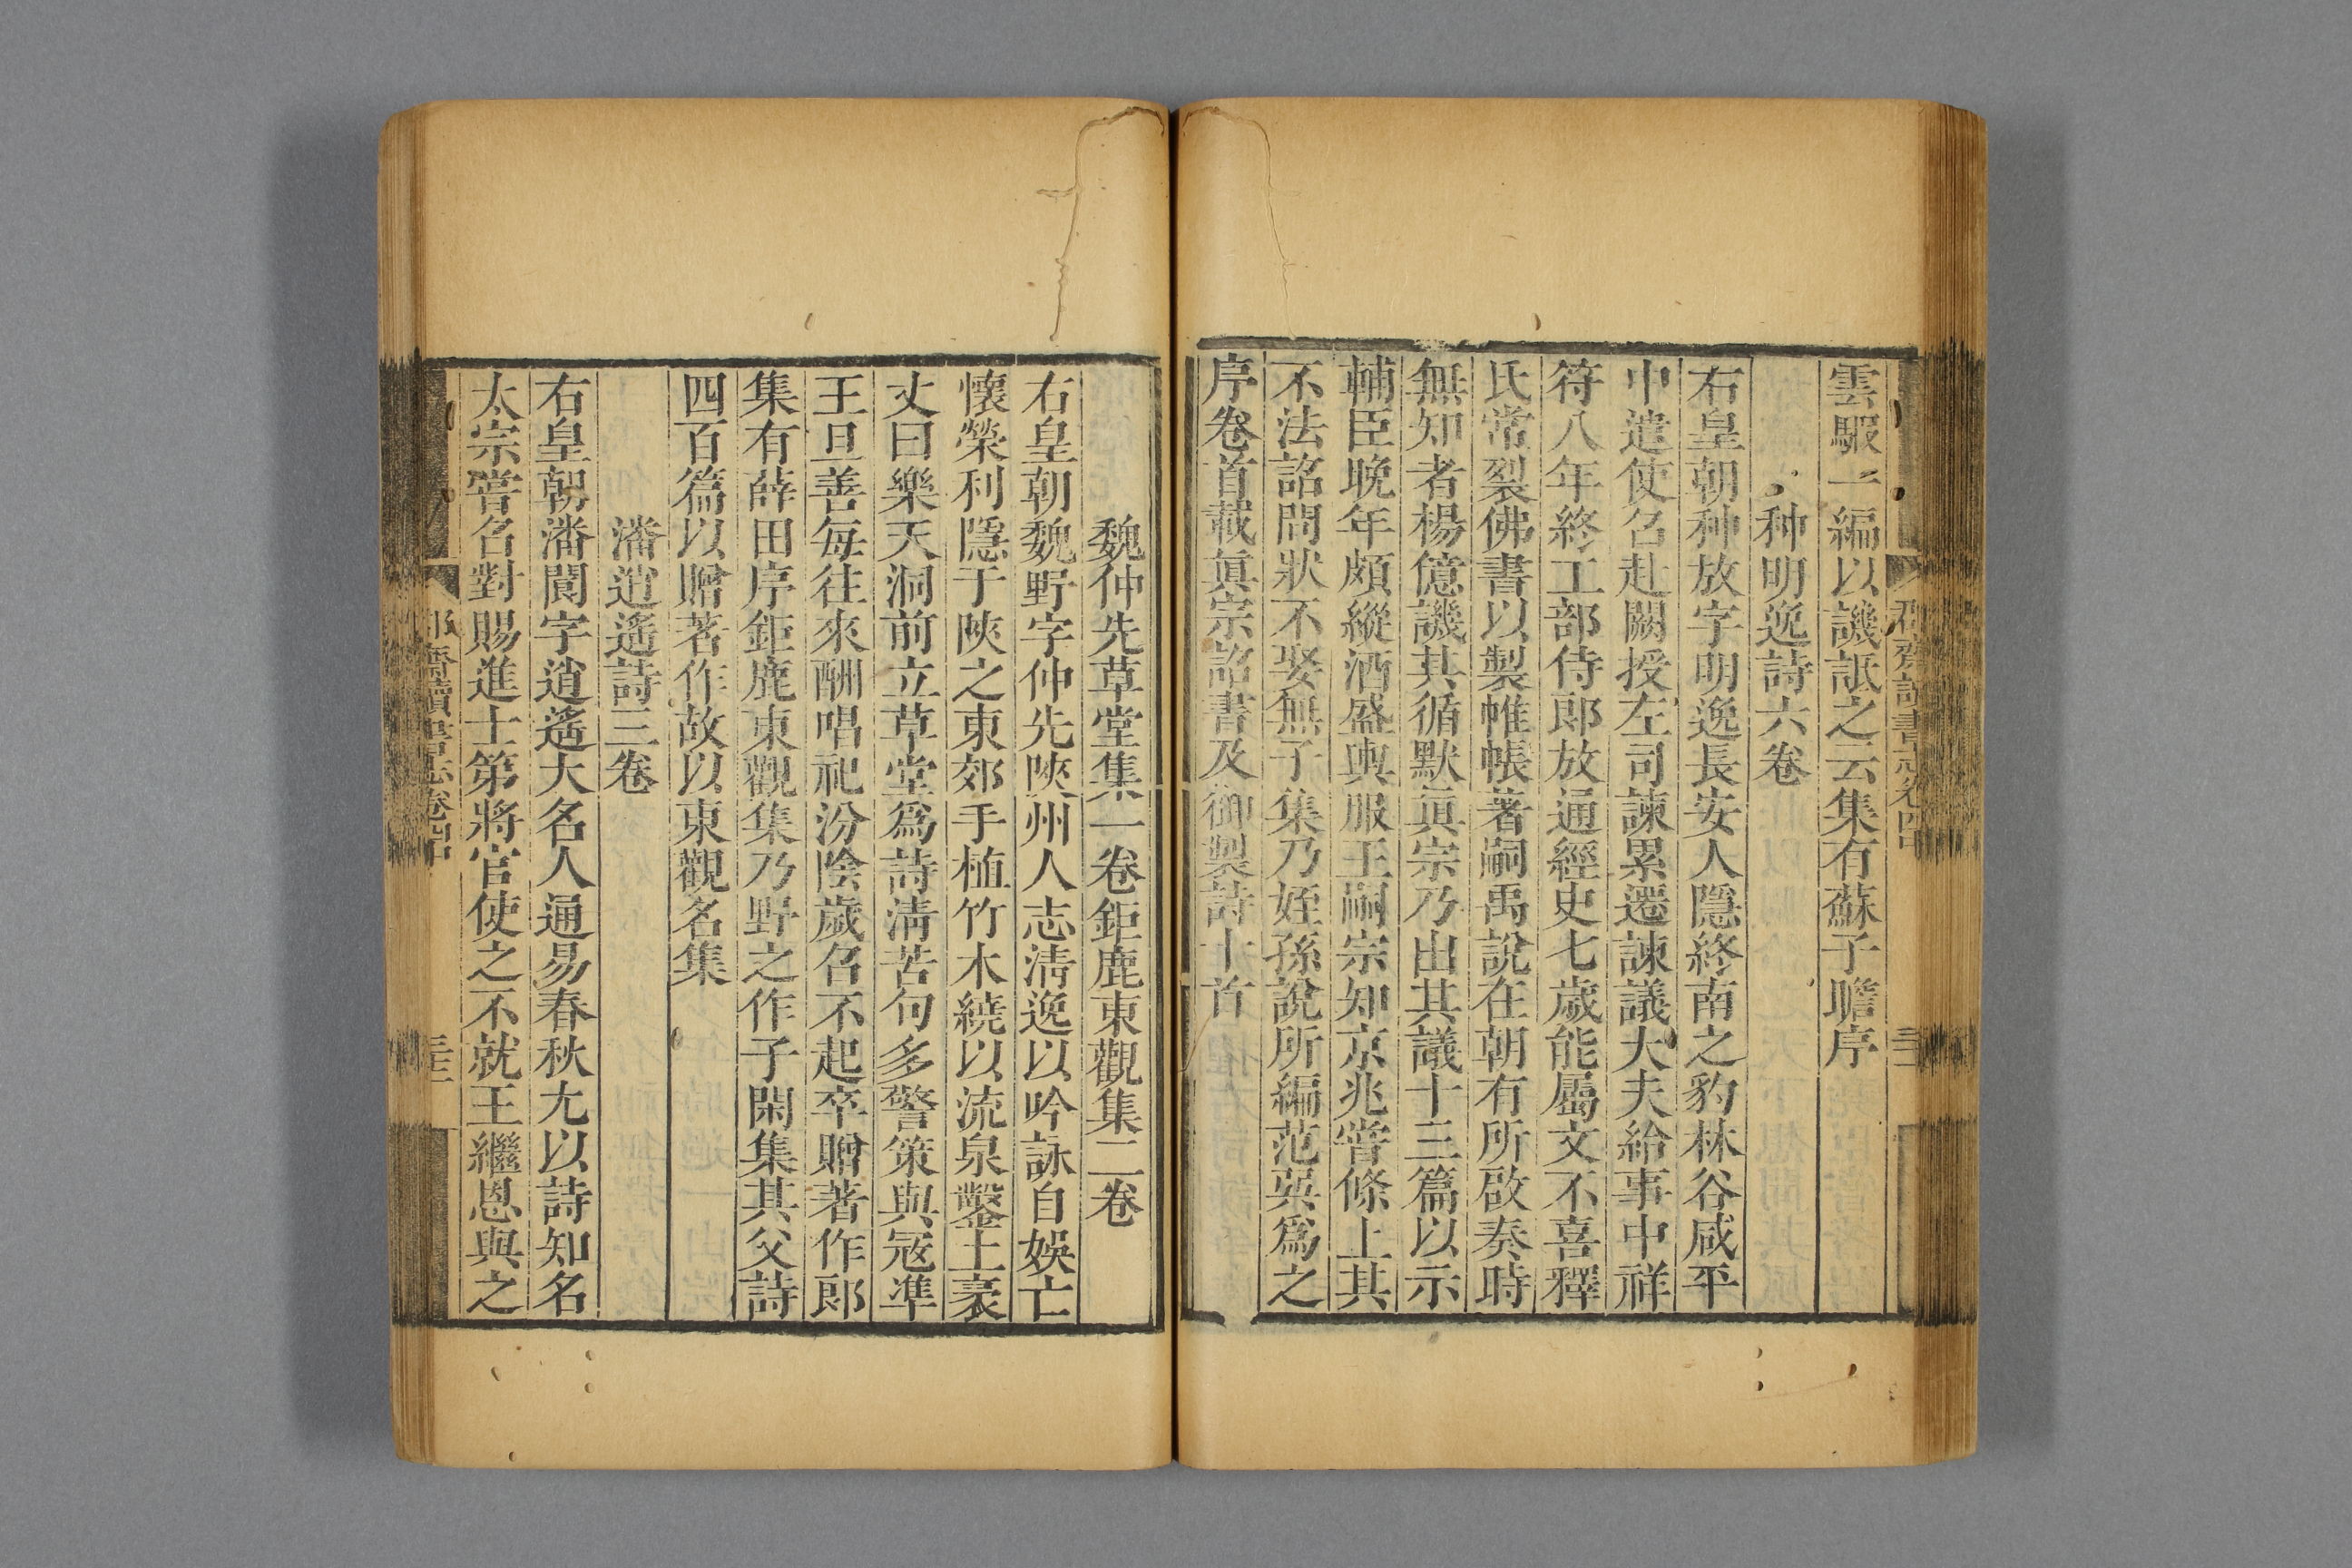 雲騢一編以譏詆之云集有蘇子瞻序
种明逸詩六卷
右皇朝种放字明逸長安人隱終南之豹林谷咸平
中遣使召赴闕授左司諫累遷諫議大夫給事中祥
符八年終工部侍郎放通經史七歲能屬文不喜釋
氏常裂佛書以製帷帳著嗣禹說在朝有所啟奏時
無知者楊億譏其循默眞宗乃出其議十三篇以示
輔臣晚年頗縱酒盛輿服王嗣宗知京兆嘗條上其
不法詔問狀不娶無子集乃姪孫說所編范吳爲之
序卷首載眞宗詔書及御製詩十首
魏仲先草堂集一卷鉅鹿東觀集二卷
右皇朝魏野字仲先陝州人志清逸以吟詠自娛亡
懷榮利隱于陝之東郊手植竹木繞以流泉鑿土袤
丈曰樂天洞前立草堂爲詩清苦句多警策與寇準
王旦善每往來酬唱祀汾陰歲召不起卒贈著作郎
集有薛田序鉅鹿東觀集乃野之作子閑集其父詩
四百篇以贈著作故以東觀名集
潘逍遙詩三卷
右皇朝潘閬字逍遙大名人通易春秋尤以詩知名
太宗嘗召對賜進士第將官使之不就王繼恩與之